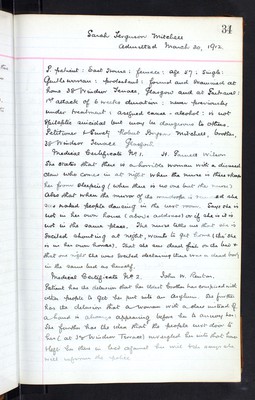 34
Sarah Ferguson Mitchell
Admitted March 20, 1912.
P. patient: East House: female: age 57: Single:
Gentlewoman: protestant: found and examined at
home 38 Windsor Terrace, Glasgow and at
1st attack of 6 weeks duration: never previously
under treatment: assigned cause - alcohol: is not
epileptic suicidal but may be dangerous to others.
Petitioner Robert Mitchell, brother,
38 Windsor Terrace Glasgow.
Medical Certificate No 1. H. Wilson
She states that there is a horrible woman with a diseased
who comes in at night when the nurse is there
her from sleeping (when there is no one but the nurse)
Also that when the mirror of the wardrobe is she
sees naked people dancing in the next room. Says she is
not in her own house (above address) or if she is it is
not in the same place. The nurse tells me that she is
shouting at night, wants to go home (tho' she
is in her own house). That she sees dead folk on the bed &
that one night she was declaring there was a dead body
in the same bed as herself.
Medical Certificate No 2. John W. Renton.
Patient has the delusion that her eldest brother has conspired with
other people to get her put into an asylum. She further
has the delusion that a woman with a claw instead of
a hand is always appearing before her to annoy her.
She further has the idea that the people next door to
her (at 38 Windsor Terrace) inveigled her into that house
kept her there in bed against her will
will inform the police.